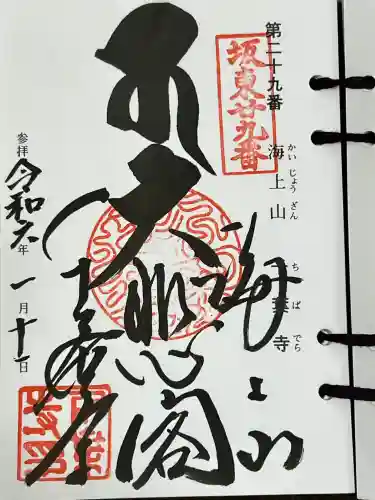 第二十九番 海上山 千葉寺
かいじょうざん ちばでら
坂東廿九番
海上山
大悲心閣
千葉寺
参拝 令和六年 一月十一日